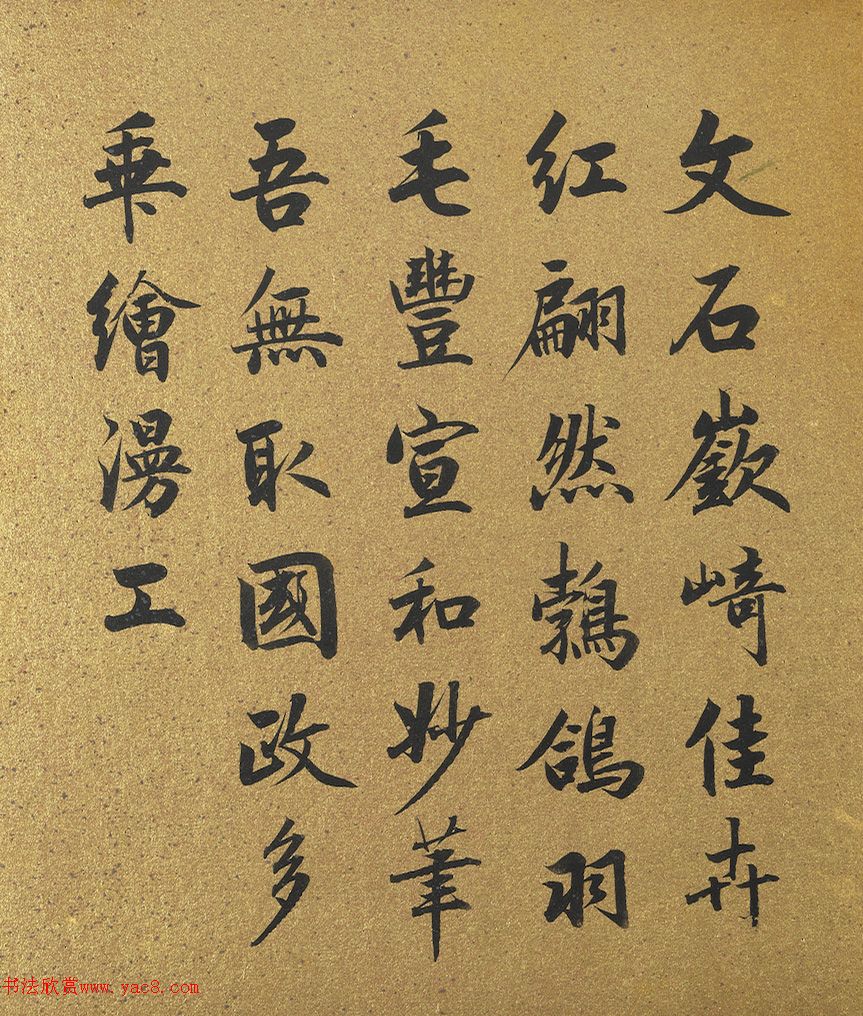 文石嶔崎佳卉
紅翩然鶉鴿羽
毛豐宣和妙筆
吾無取國政多
乖繪漫工
书法欣赏www.yac8.com